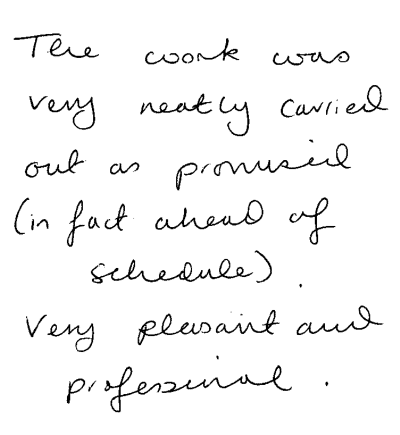 The work was
very neatly carried
out as promised
(in fact ahead of
schedule).
Very pleasant and
professional.